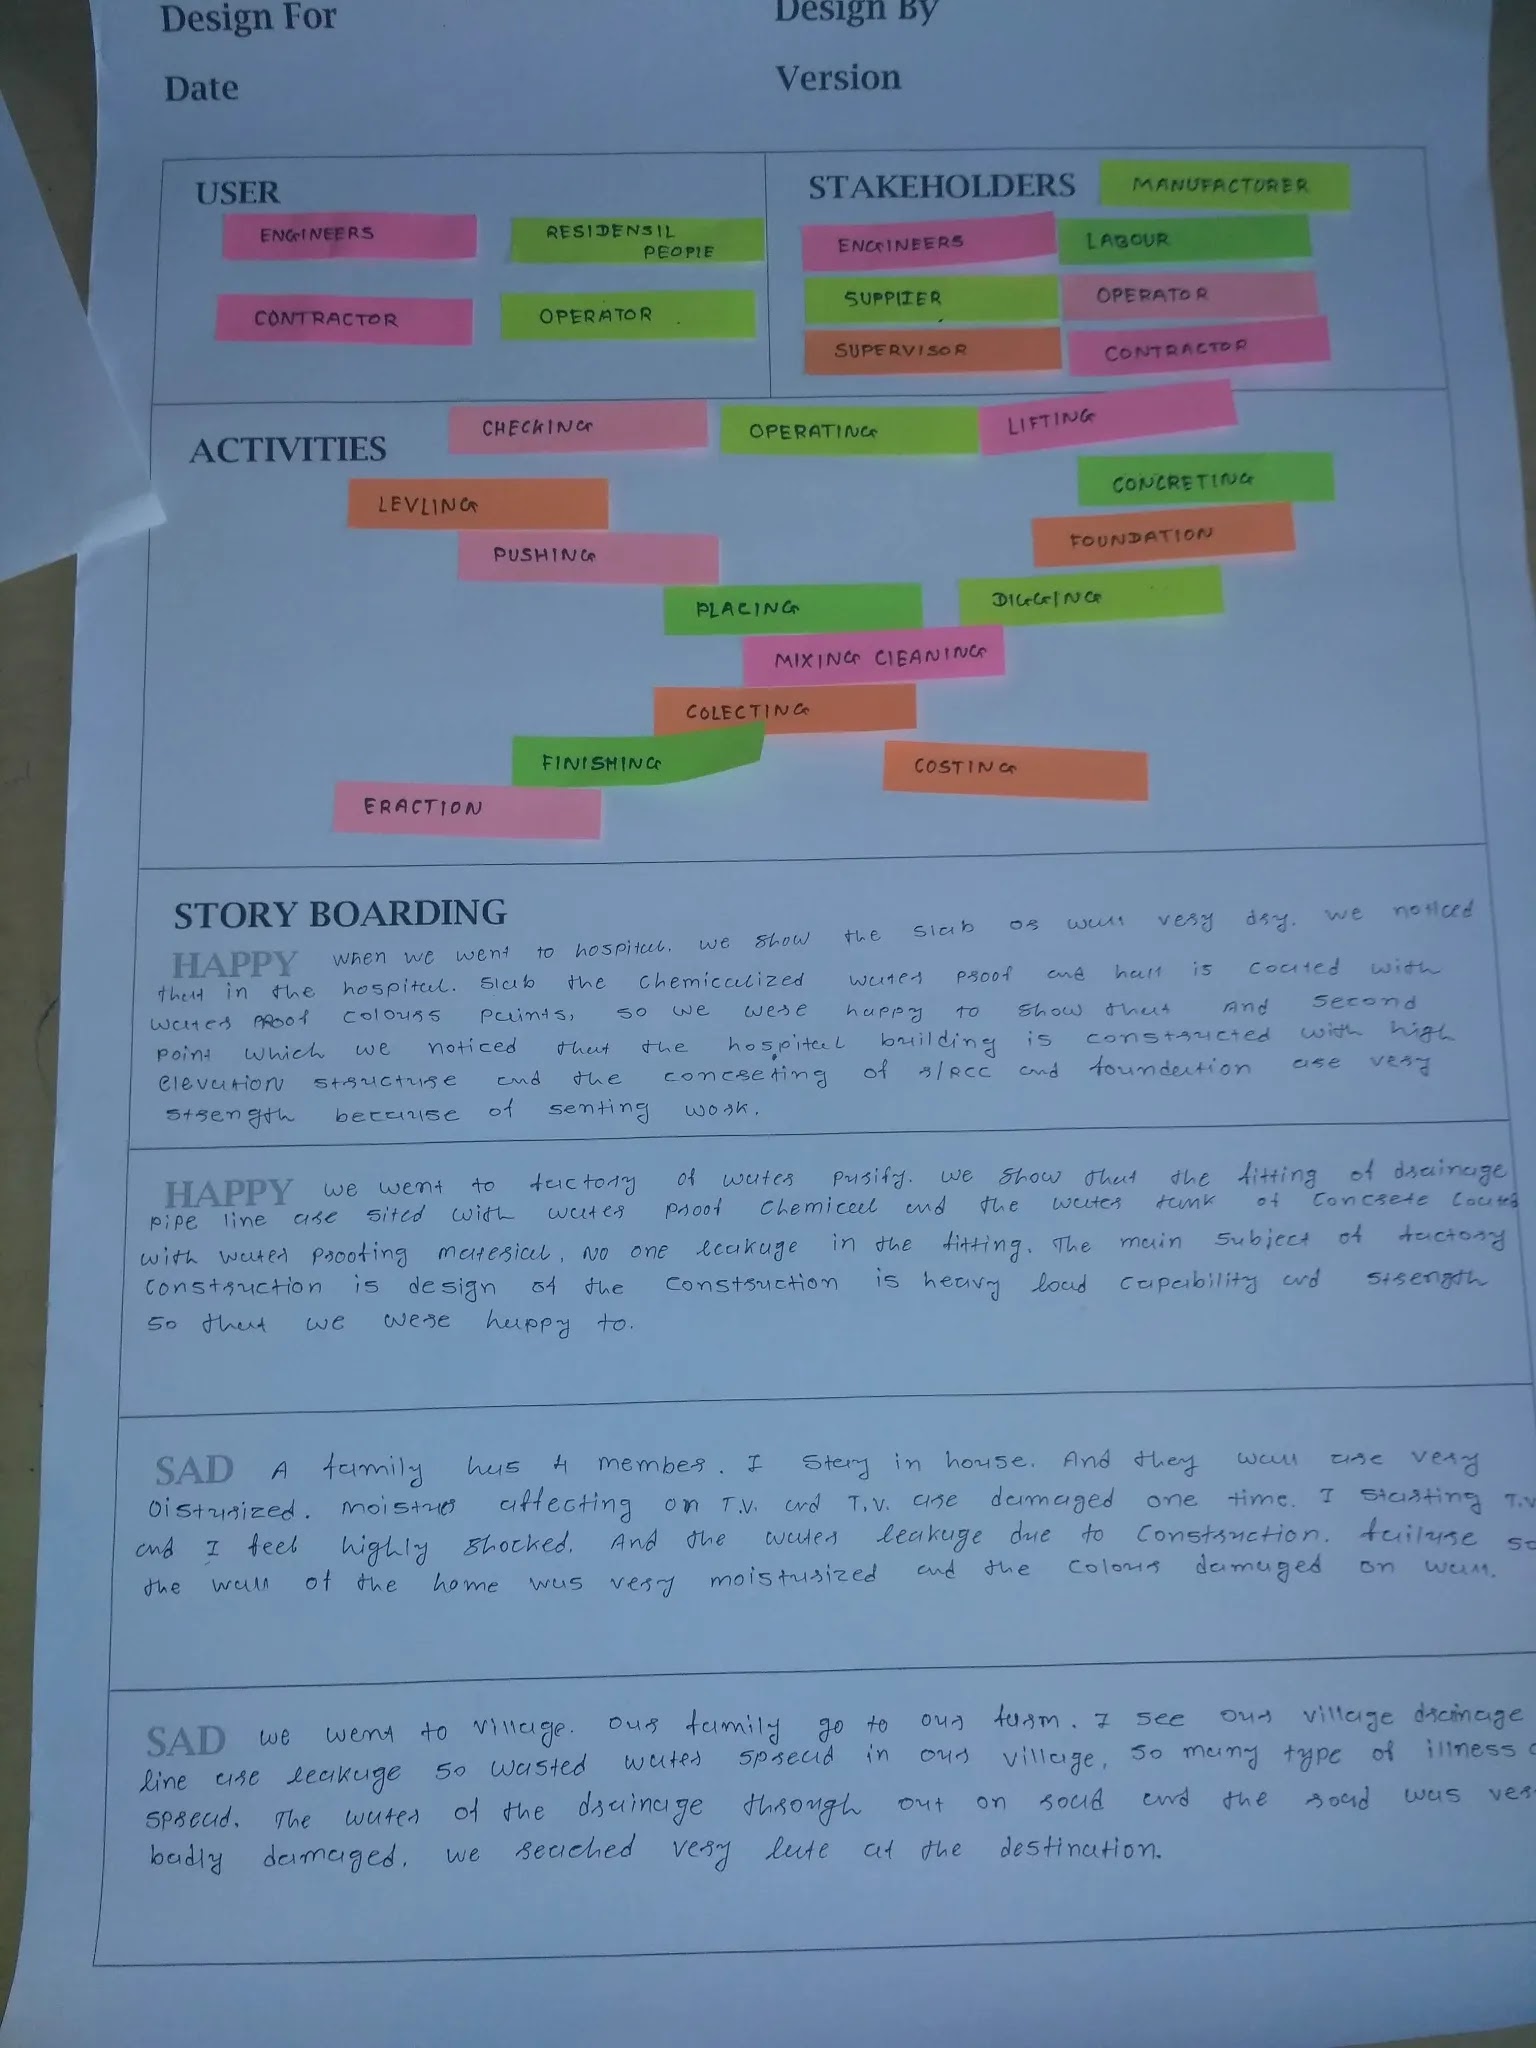 Design For
Design By
Date
Version
USER
ENGINEERS
RESIDENSIL
PEOPLE
CONTRACTOR
OPERATOR
STAKEHOLDERS
MANUFACTURER
ENGINEERS
LABOUR
SUPPLIER
OPERATOR
SUPERVISOR
CONTRACTOR
ACTIVITIES
CHECKING
OPERATING
LIFTING
LEVLING
CONCRETING
PUSHING
FOUNDATION
PLACING
DIGGING
MIXING CLEANING
COLECTING
FINISHING
COSTING
ERACTION
STORY BOARDING
HAPPY when we went to hospital. we show the slab or wall very dry. we noticed
that in the hospital. slab the chemicalized water proof and hall is coated with
water proof colours paints, so we were happy to show that And second
point which we noticed that the hospital building is constructed with high
elevation structure and the concreting of s/RCC and foundation are very
strength because of senting work.
HAPPY we went to factory of water purify. we show that the fitting of drainage
pipe line are sited with water proof chemical and the water tank of concrete coated
with water proofing material. No one leakage in the fitting. The main subject of factory
construction is design of the construction is heavy load capability and strength
so that we were happy to.
SAD A family has 4 member. I stay in house. And they wall are very
Oisturized. moistur affecting on T.V. and T.V. are damaged one time. I starting T.V
and I feel highly shocked. And the water leakage due to construction. failure so
the wall of the home was very moisturized and the colour damaged on wall.
SAD we went to village. our family go to our farm. I see our village drainage
line are leakage so wasted water spread in our village, so many type of illness
spread. The water of the drainage through out on road and the road was ver
badly damaged. we reached very late at the destination.